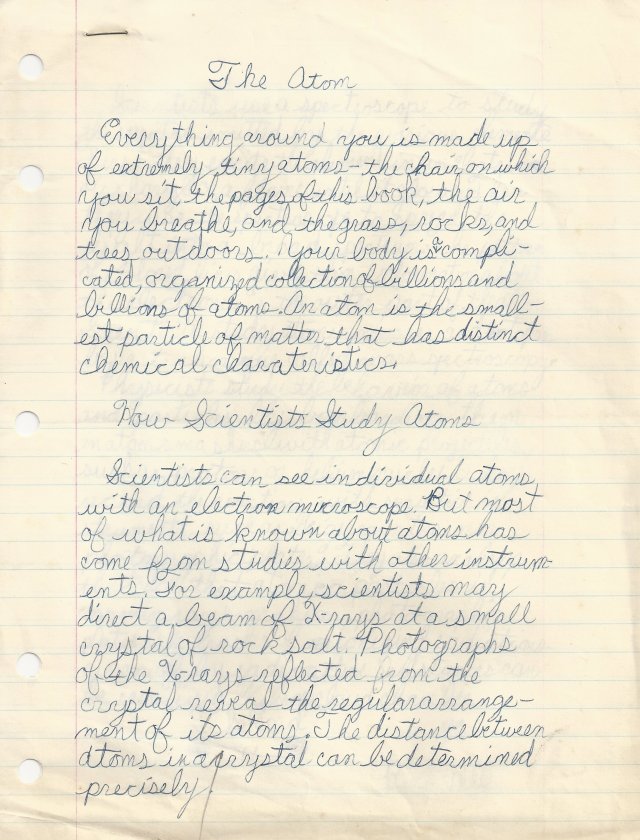 The Atom
Everything around you is made up
of extremely tiny atoms—the chair on which
you sit the pages of this book, the air
you breathe, and the grass, rocks, and
trees outdoors. Your body is a compli-
cated, organized collection of billions and
billions of atoms. An atom is the small-
est particle of matter that has distinct
chemical charateristics.
How Scientists Study Atoms
Scientists can see individual atoms
with an electron microscope. But most
of what is known about atoms has
come from studies with other instrum-
ents. For example, scientists may
direct a beam of X-rays at a small
crystal of rock salt. Photographs
of the X-rays reflected from the
crystal reveal the regular arrange-
ment of its atoms. The distance between
atoms in a crystal can be determined
precisely.